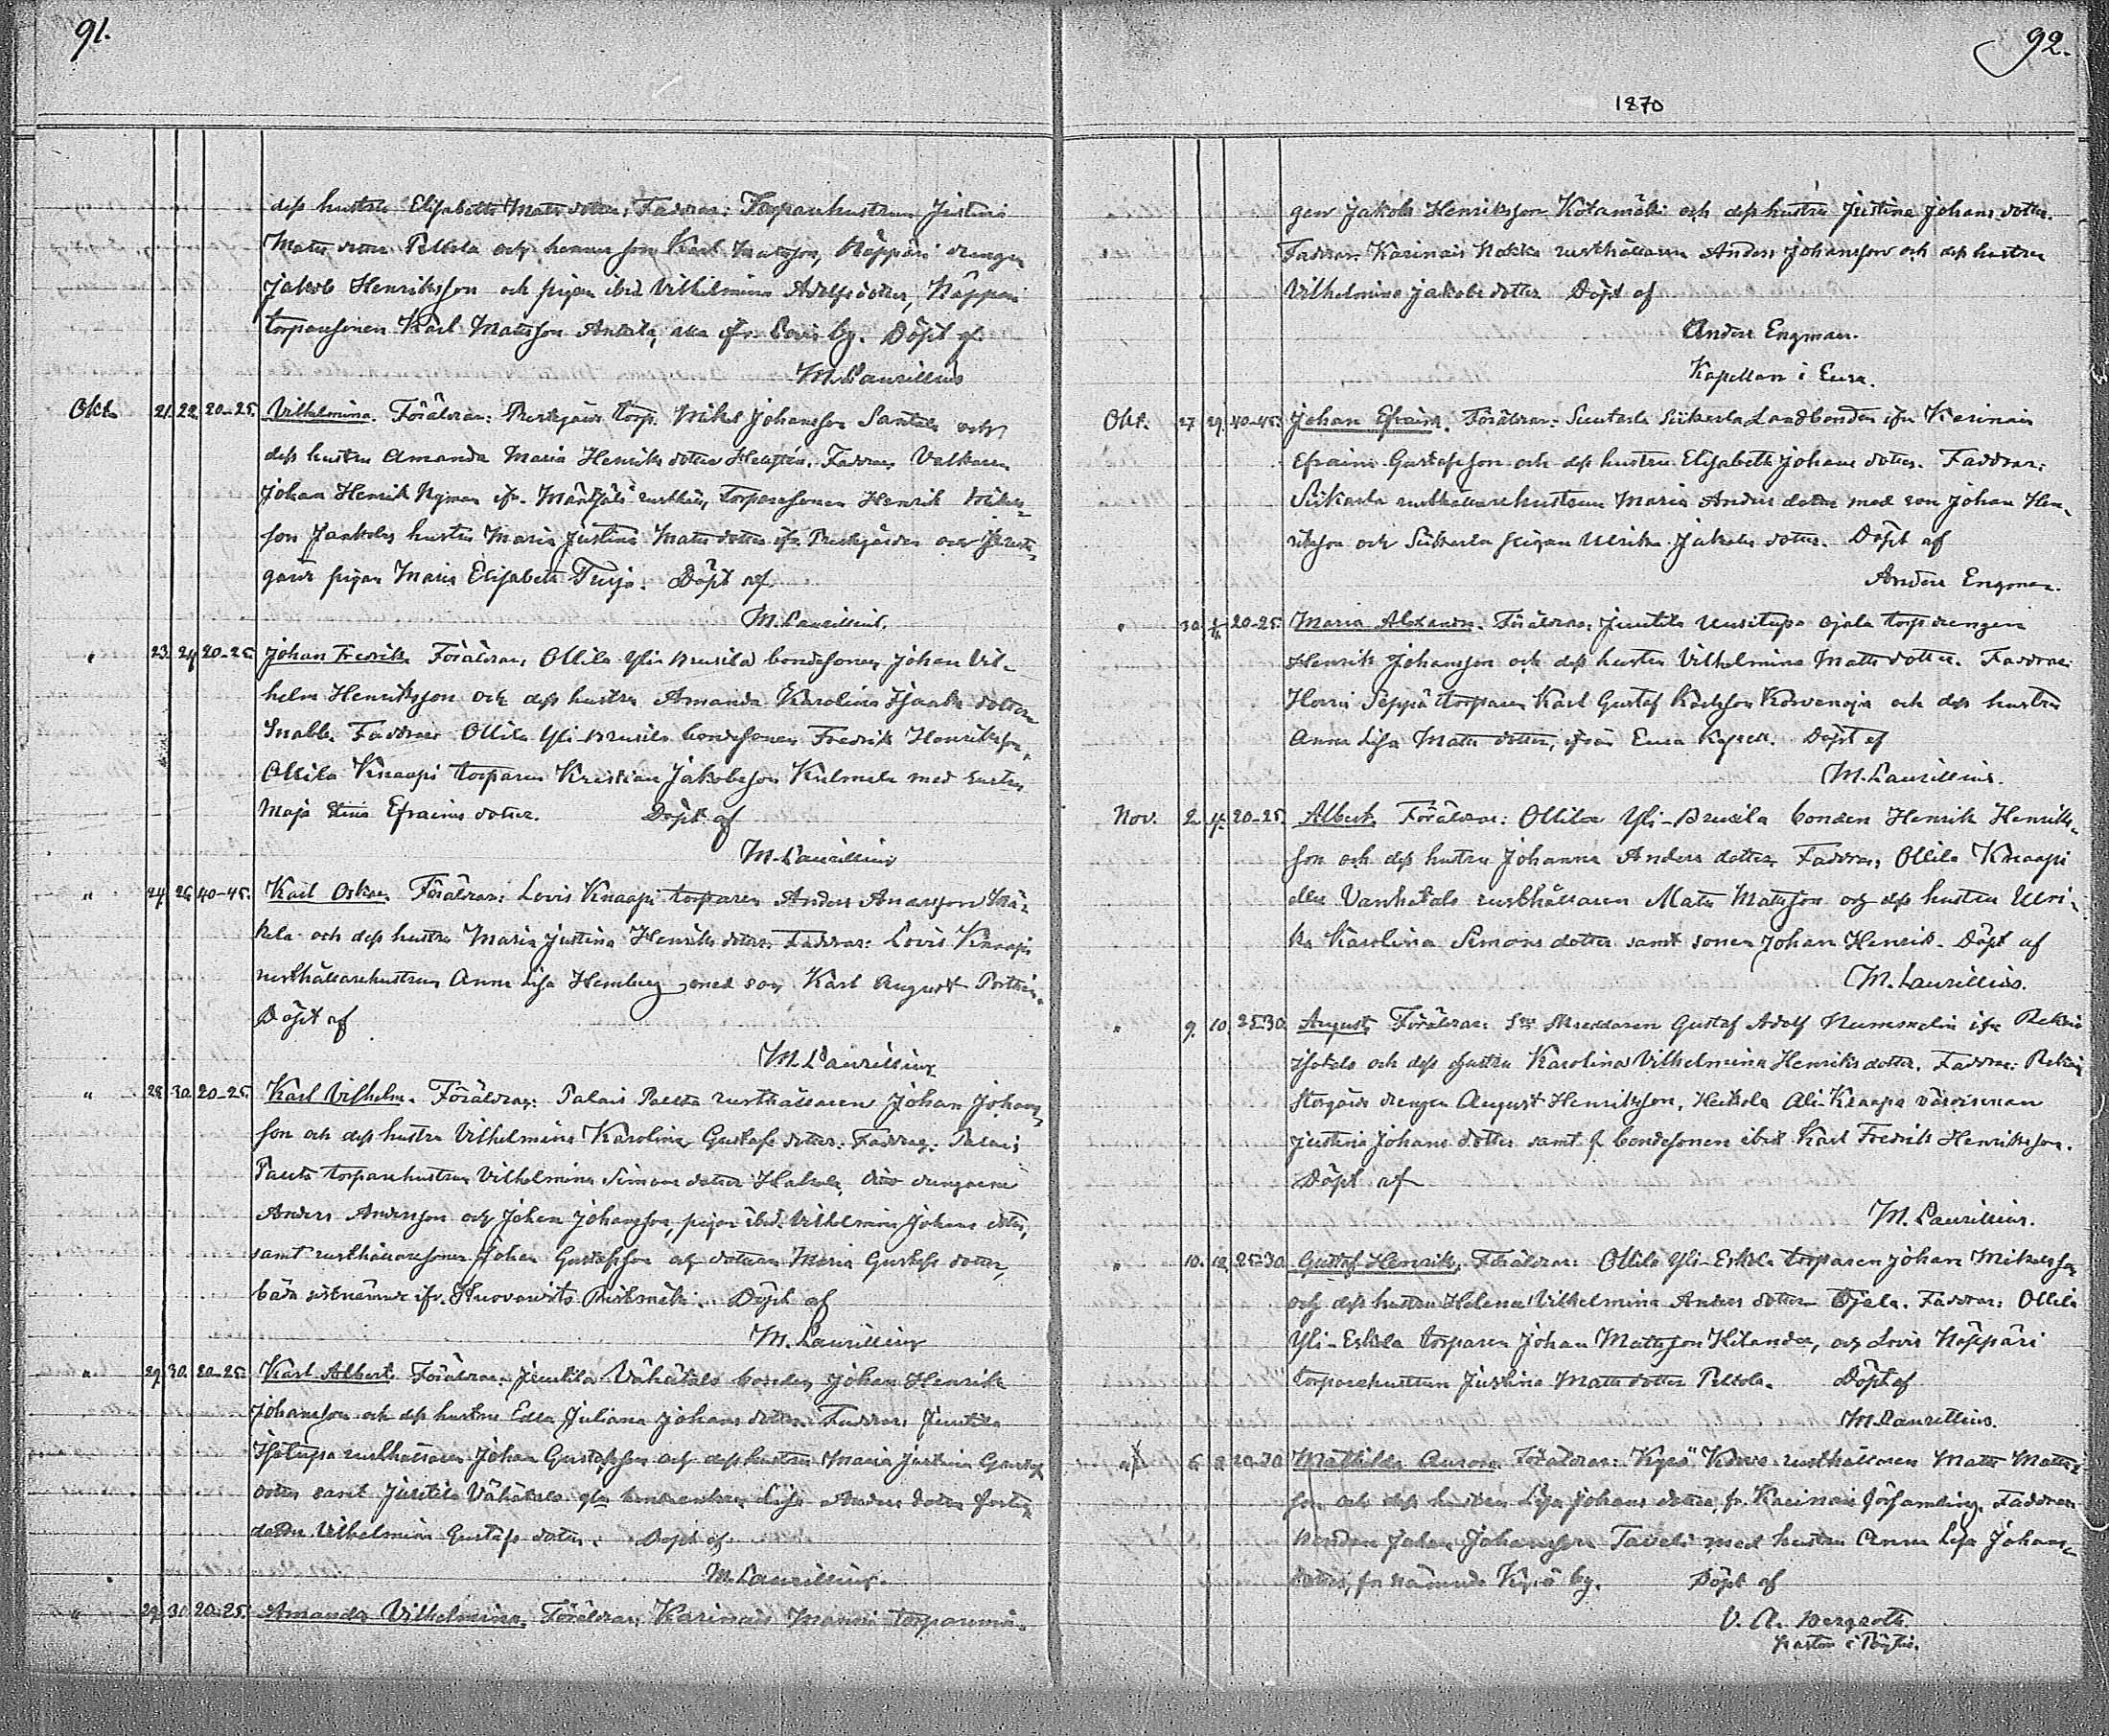 91.
dess hustru Elisabeth Matts dotter. Faddrar: Torparehustrun Justina
Matts dotter Peltola och hennes son Karl Mattsson, Näppäri drengen
Jakob Henriksson och pigan ibid. Vilhelmina Adolfs dotter, Näppäri
torparesonen Karl Mattsson Anttila, alla ifr. Lovis by. Döpt af
M. Laurillius
Okt. 21. 22. 20-25. Vilhelmina. Föräldrar: Prestgårds torp. Mikel Johansson Santala och
dess hustru Amanda Maria Henriks dotter. Faddrar: Valkaren
Johan Henrik Nyman ifr. rusth., torparesonen Henrik Mikels-
son Jaakolas hustru Maria Justina Matts dotter ifr. Prestgården och Prest-
gårds pigan Maria Elisabeth. Döpt af
M. Laurillius.
" 23. 24. 20-25. Johan Fredrik. Föräldrar: Ollila Yli-Brusila bondesonen Johan Vil-
helm Henriksson och dess hustru Amanda Karolina Isaks dotter
Snabb. Faddrar: Ollila Yli-Brusila bondesonen Fredrik Henriksson,
Ollila Knaapi torparen Kristian Jakobsson Kulmala med hustru
Maja Stina Efraims dotter. Döpt af
M. Laurillius
" 24. 26. 40-45. Karl Oskar. Föräldrar: Lovis Knaapi torparen Anders Andersson Mä-
kelä och dess hustru Maria Justina Henriks dotter. Faddrar: Lovis Knaapi
rusthållarehustrun Anna Lisa Hemberg med son Karl August
Döpt af
M. Laurillius
" 28. 30. 20-25. Karl Vilhelm. Föräldrar: Palais rusthållaren Johan Johans-
son och dess hustru Vilhelmina Karolina Gustafs dotter. Faddrar: Palais
torparehustrun Vilhelmina Simons dotter, dito drengarne
Anders Andersson och Johan Johansson, pigan ibid. Vilhelmina Johans dotter,
samt rusthållaresonen Johan Gustafsson och dottren Maria Gustafs dotter,
båda sistnämnde ifr. Döpt af
M. Laurillius
" 29. 30. 20-25. Karl Albert. Föräldrar: Juntila Vähätalo bonden Johan Henrik
Johansson och dess hustru Edla Juliana Johans dotter. Faddrar: Juntila
Isotupa rusthållaren Johan Gustafsson och dess hustru Maria Justina Gustafs
dotter samt Juntila Vähätalo Lisa Anders dotter
dotter Vilhelmina Gustafs dotter. Döpt af
M. Laurillius.
" 29. 30. 20-25. Amanda Vilhelmina. Föräldrar: Karinais torparemå-
92.
1870
gen Jakob Henriksson Kotamäki och dess hustru Justina Johans dotter.
Faddrar: Karinais Nokka rusthållaren Anders Johansson och dess hustru
Vilhelmina Jakobs dotter. Döpt af
Anders Engman.
Kapellan i Eura.
Okt. 27. 29. 40-45. Johan Efraim. Föräldrar: Landbonden ifr. Karinais
Efraim Gustafsson och dess hustru Elisabeth Johans dotter. Faddrar:
rusthållarehustrun Maria Anders dotter med son Johan Hen-
riksson och pigan Ulrika Jakobs dotter. Döpt af
Anders Engman.
" 30. 20-25. Maria Alexandra. Föräldrar: Juntila Uusitupa Ojala torp drengen
Henrik Johansson och dess hustru Vilhelmina Matts dotter. Faddrar:
Seppä torparen Karl Gustaf Karlsson Korvenoja och dess hustru
Anna Lisa Matts dotter, ifrån Eura Kapell. Döpt af
M. Laurillius.
Nov. 2. 4. 20-25. Albert. Föräldrar: Ollila Yli-Brusila bonden Henrik Henriks-
son och dess hustru Johanna Anders dotter. Faddrar: Ollila Knaapi
eller Vanhatalo rusthållaren Matts Mattsson och dess hustru Ulri-
ka Karolina Simons dotter samt sonen Johan Henrik. Döpt af
M. Laurillius.
" 9. 10. 25-30. August. Föräldrar: Skreddaren Gustaf Adolf Nummelin ifr.
Isotalo och dess hustru Karolina Vilhelmina Henriks dotter. Faddrar:
Storgårds drengen August Henriksson, Heikola Ali-Knaapi
Justina Johans dotter samt bondesonen ibid Karl Fredrik Henriksson.
Döpt af
M. Laurillius.
" 10. 12. 25-30. Gustaf Henrik. Föräldrar: Ollila Yli-Eskola torparen Johan Mikelsson
och dess hustru Helena Vilhelmina Anders dotter Ojala. Faddrar: Ollila
Yli-Eskola torparen Johan Mattsson Kilander, och Lovis Näppäri
torparehustrun Justina Matts dotter Peltola. Döpt af
M. Laurillius.
6. 8. 20-30. Mathilda Aurora. Föräldrar: Kyrö rusthållaren Matts Matts-
son och dess hustru Lisa Johans dotter, fr. Karinais församling. Faddrar:
Bonden Johan Johansson Taveli med hustru Anna Lisa Johans-
dotter, fr. nämnde Kyrö by. Döpt af
V. A. Bergroth
Pastor i Pöytis.